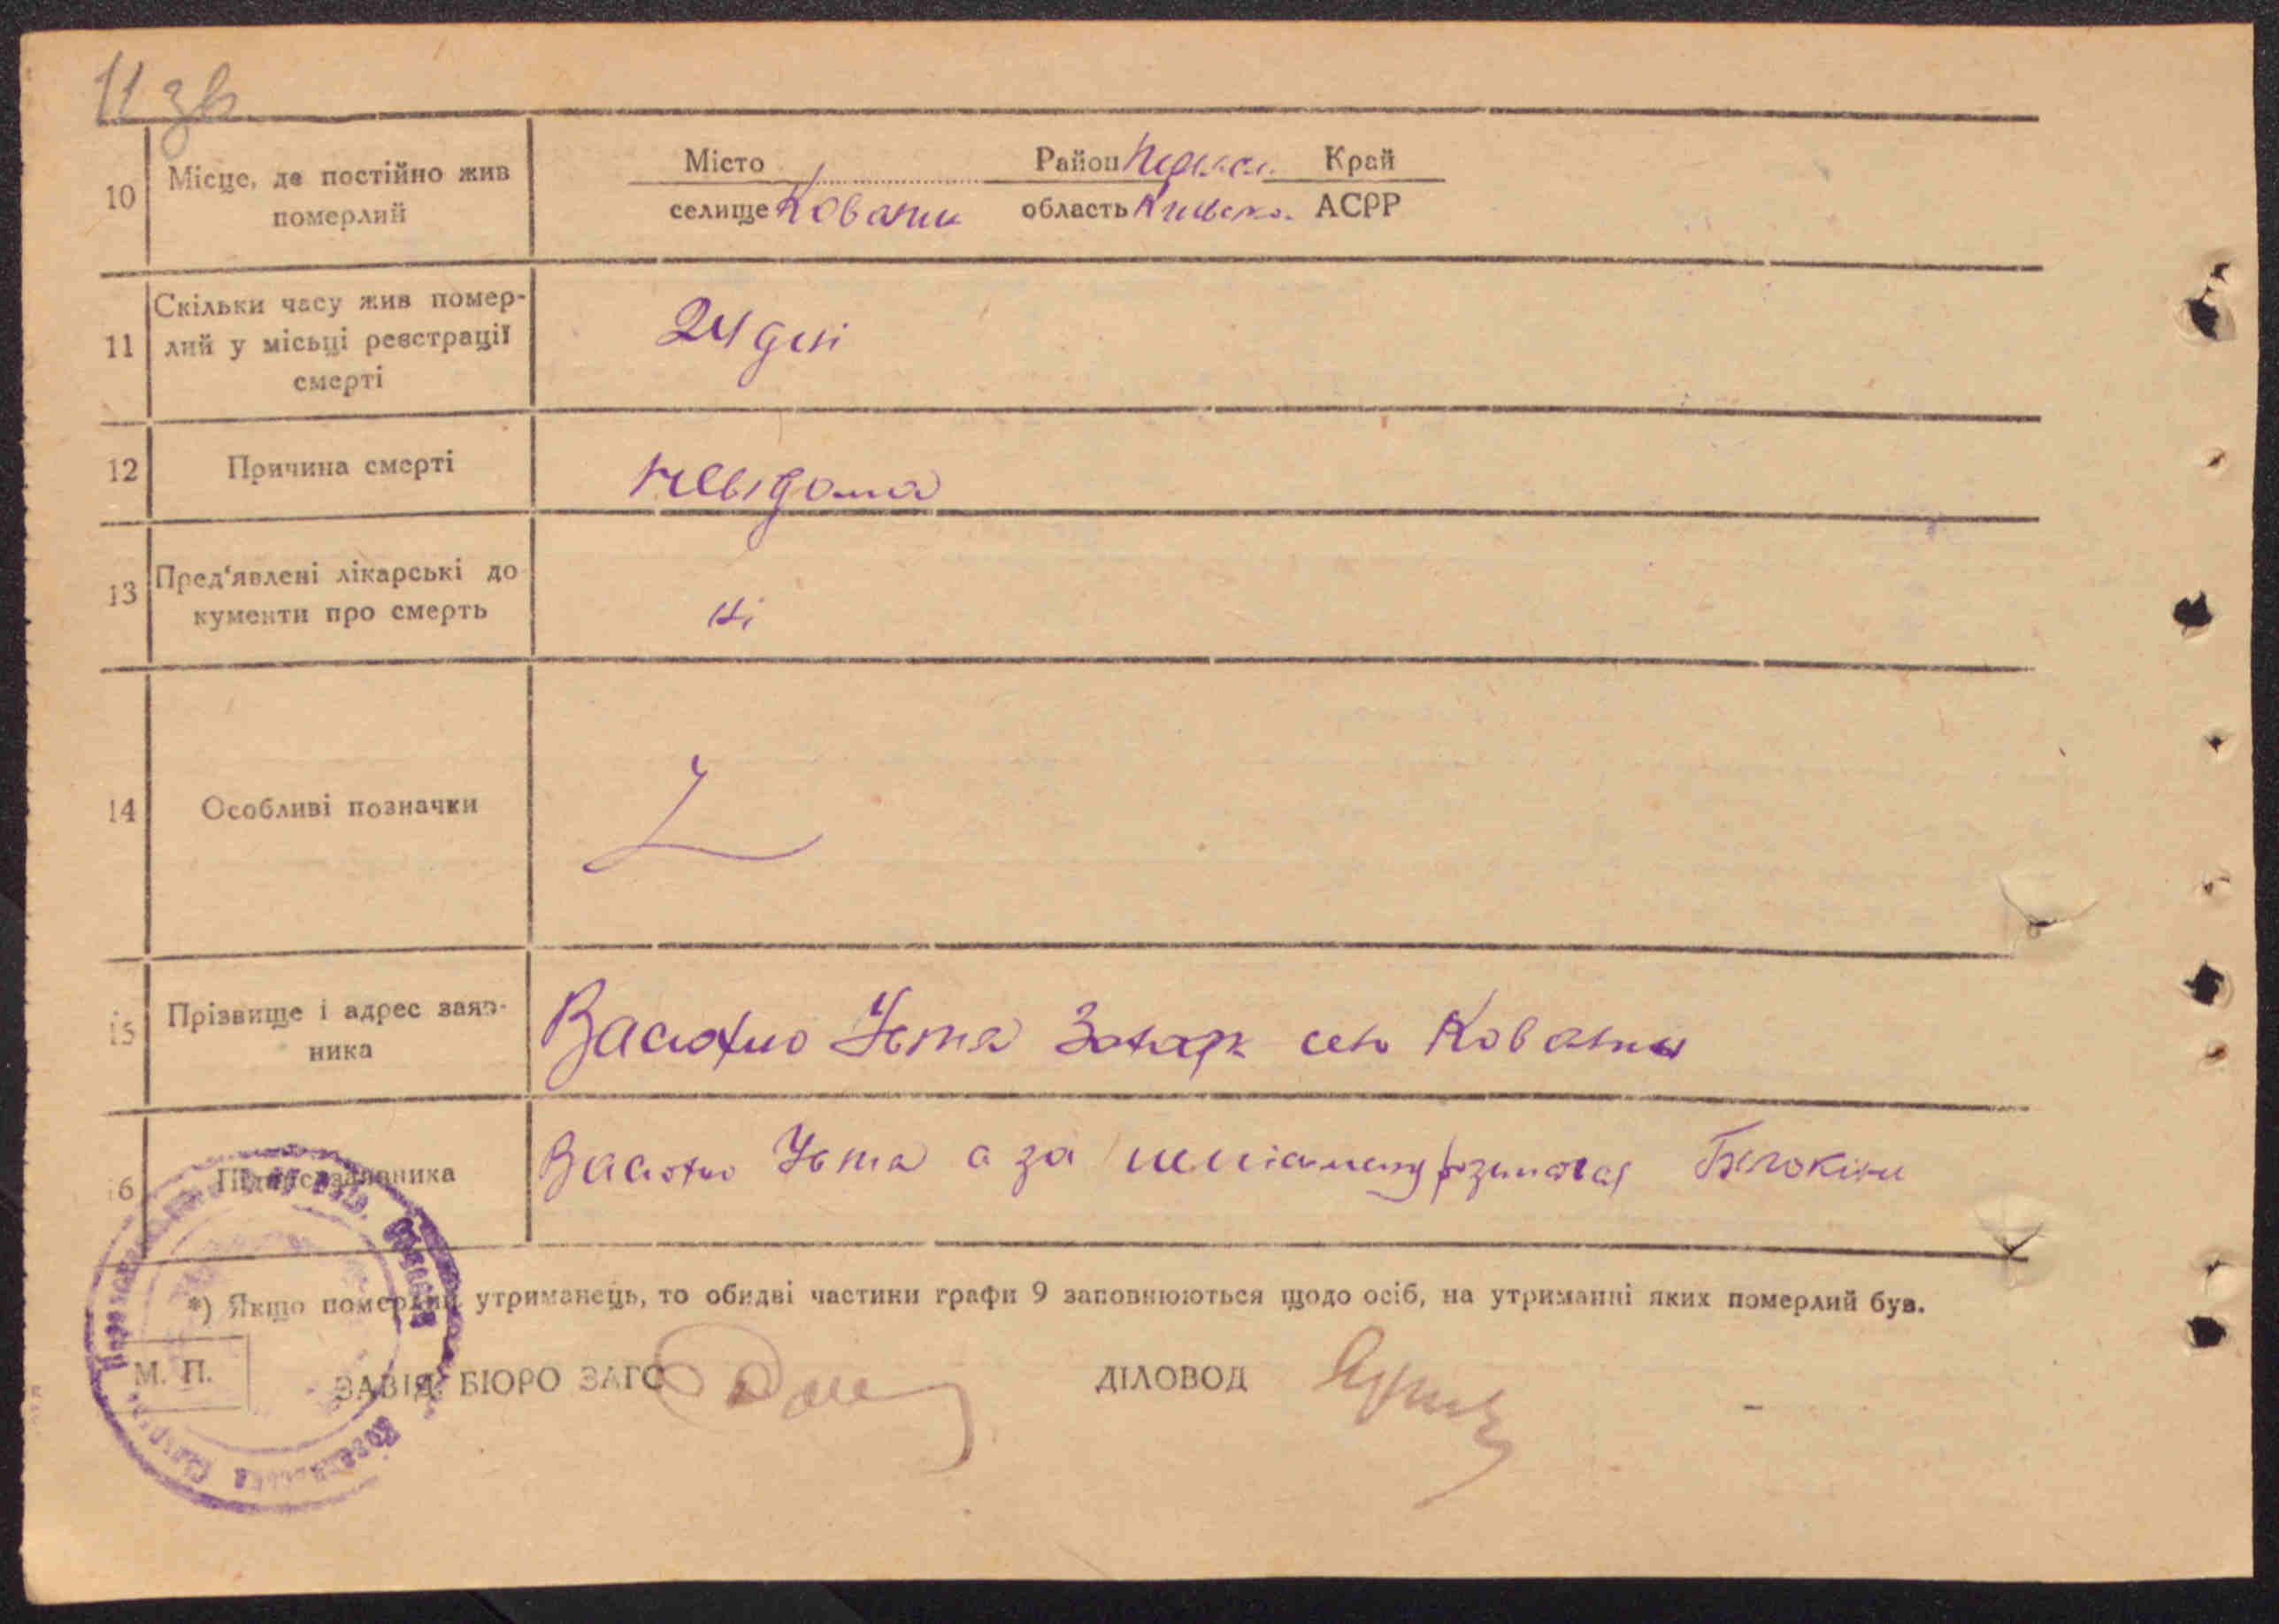 11 зв
10 Місце, де постійно жив померлий
Місто Район Переясл. Край
селище Ковалин область Київська АСРР
11 Скільки часу жив помер-
лий у місьці реєстрації
смерті
24 дні
12 Причина смерті невідома
13 Пред'явлені лікарські до
кументи про смерть
ні
14 Особливі позначки
15 Прізвище і адрес заяв-
ника
Васюхно Уста Захар село Ковалин
16 Підпис заявника
Васюхно Уста а за неписьмену розписалась
*) Якщо померлий утриманець, то обидві частини графи 9 заповнюються щодо осіб, на утриманні яких померлий був.
М. П.
ЗАВІД. БЮРО ЗАГС ДІЛОВОД